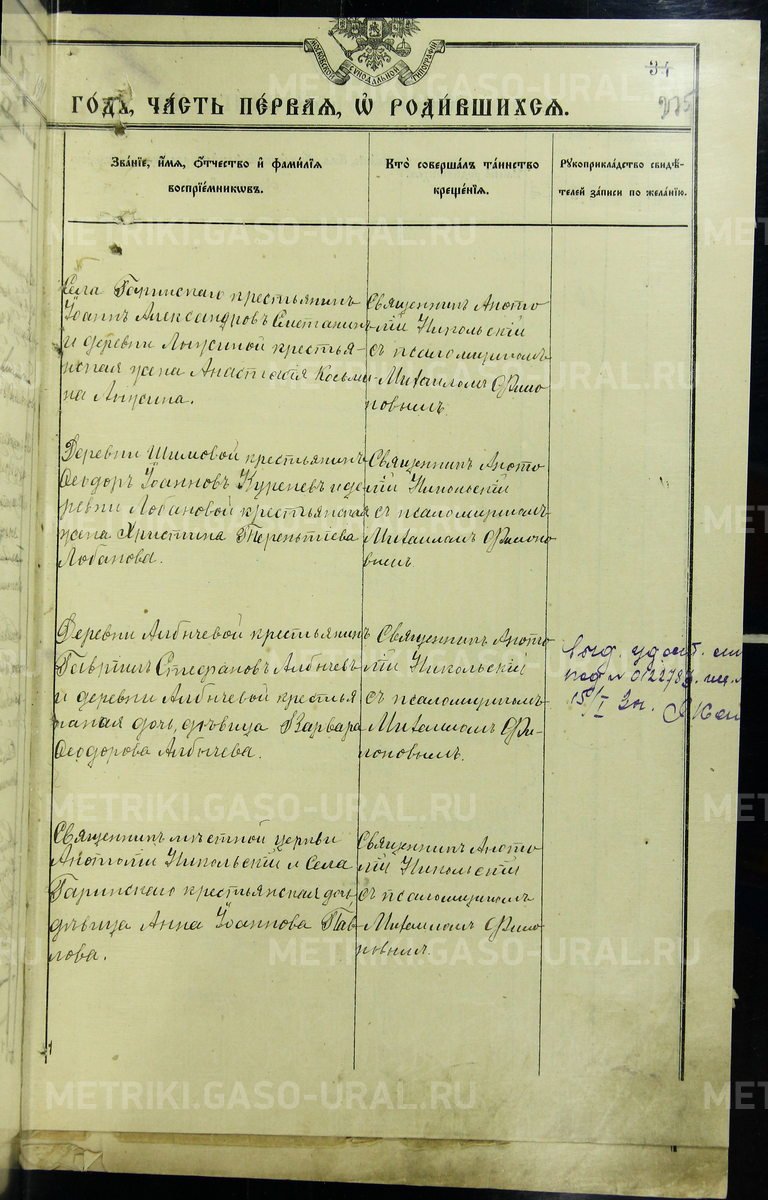 МОСКОВСКОЙ СѴНОДАЛЬНОЙ ТИПОГРАФІИ
34
275
ГОДѢ, ЧА́СТЬ ПЕ́РВАЯ, Ѡ҆ РОДИ́ВШИХСѦ.
Зва́нїе, и҆́мѧ, ѻ҆́тчество и҆ фами́лїѧ
воспрїе́мникѡвъ.
Кто̀ соверша́лъ та́инство
креще́нїѧ.
Рꙋкоприкла́дство свидѣ́-
телей за́писи по жела́нїю.
Села Гаринскаго крестьянинъ
Іоаннъ Александровъ Сметанинъ
и деревни Линусиной крестья-
нская жена Анастасія Косьми-
на Линусина.
Священникъ Анато
лій Никольскій
съ псаломщикомъ
Михаиломъ Фило
новымъ.
Деревни Шимовой крестьянинъ
Ѳеодоръ Іоанновъ Куреневъ и де
ревни Лобановой крестьянская
жена Христина Терентіева
Лобанова.
Священникъ Анато
лій Никольскій
съ псаломщикомъ
Михаиломъ Филоно
вымъ
Деревни Албычевой крестьянинъ
Гавріилъ Стефановъ Албычевъ
и деревни Албычевой крестья
нская дочь, дѣвица Варвара
Ѳеодорова Албычева.
Священникъ Анато
лій Никольскій
съ псаломщикомъ
Михаиломъ Фи-
лоновымъ.
15/I
Священникъ мѣстной церкви
Анатолій Никольскій и Села
Гаринскаго крестьянская дочь,
дѣвица Анна Іоаннова Пав-
лова.
Священникъ Анато
лій Никольскій
съ псаломщикомъ
Михаиломъ Фило
новымъ.
METRIKI.GASO-URAL.RU